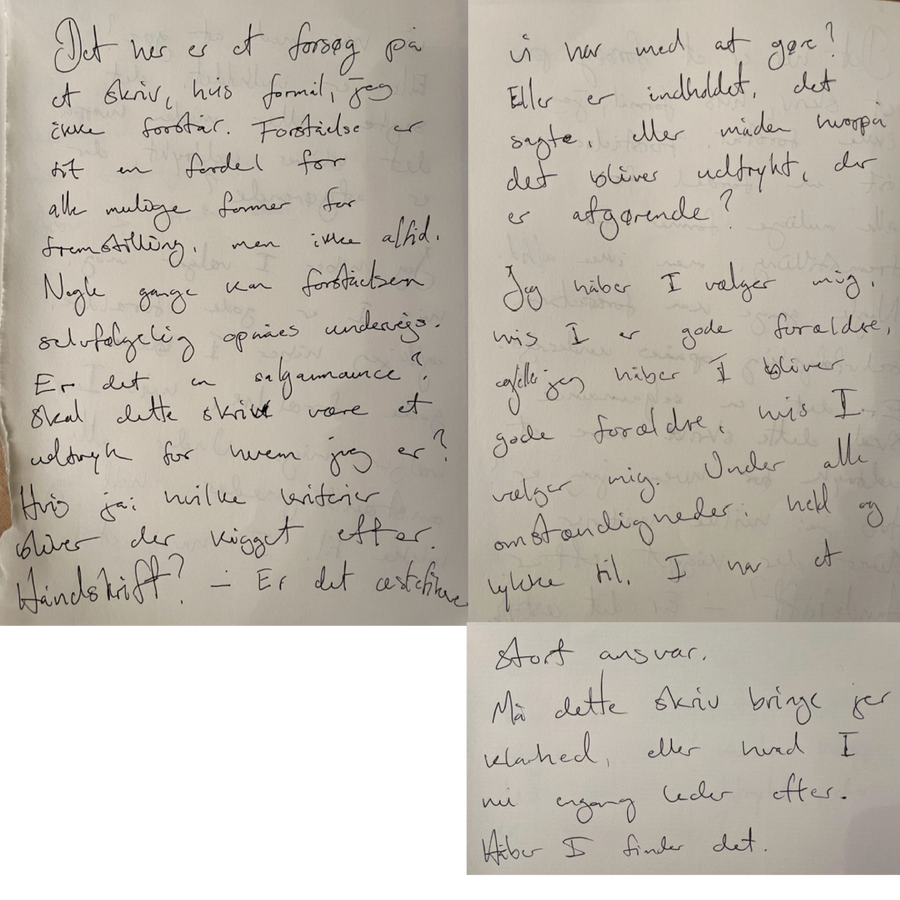 Det her er et forsøg på
et skriv, hvis formål, jeg
ikke forstår. Forståelse er
tit en fordel for
alle mulige former for
fremstilling, men ikke altid.
Nogle gange kan forståelsen
selvfølgelig opnåes undervejs.
Er det en salgsannonce?
Skal dette skriv være et
udtryk for hvem jeg er?
Hvis ja; hvilke kriterier
bliver der kigget efter.
Håndskrift? – Er det æstetikere
vi har med at gøre?
Eller er indholdet, det
sagte, eller måden hvorpå
det bliver udtrykt, der
er afgørende?
Jeg håber I vælger mig,
hvis I er gode forældre,
eller jeg håber I bliver
gode forældre, hvis I
vælger mig. Under alle
omstændigheder: held og
lykke til. I har et
stort ansvar.
Må dette skriv bringe jer
klarhed, eller hvad I
nu engang leder efter.
Håber I finder det.